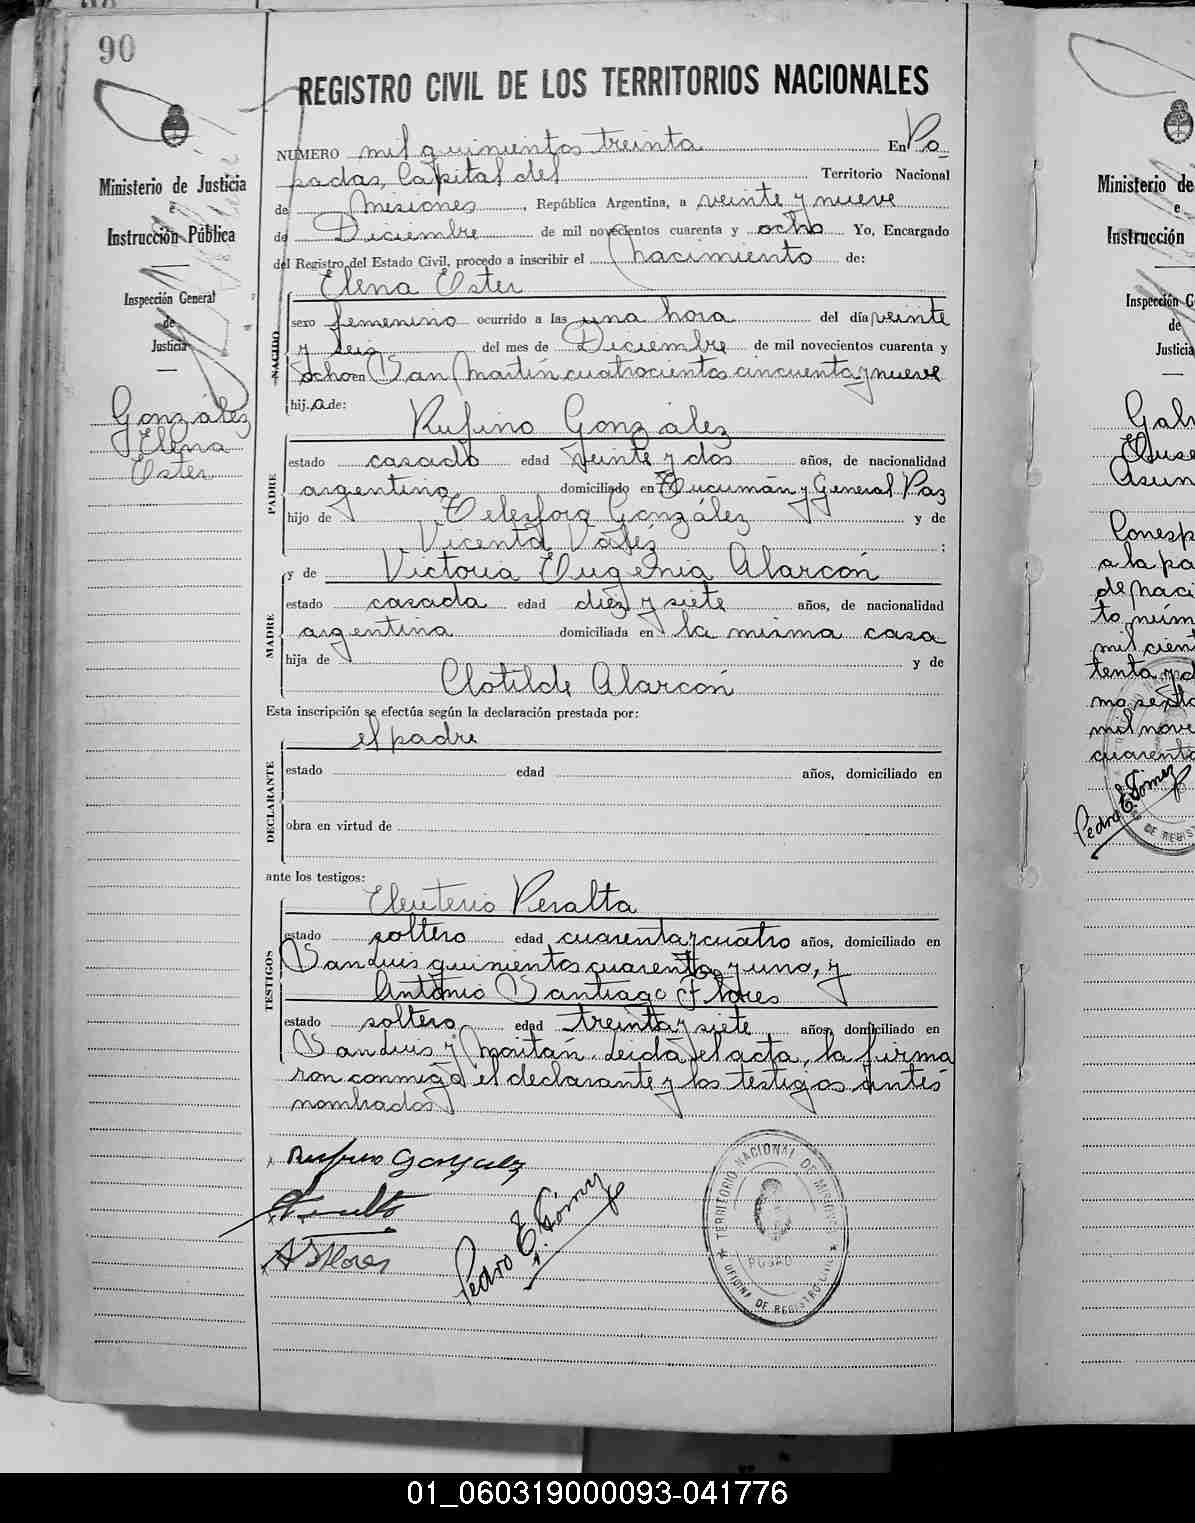 90
Ministerio de Justicia
e
Instrucción Pública
Inspección General
de
Justicia
González
Elena
Ester
REGISTRO CIVIL DE LOS TERRITORIOS NACIONALES
NUMERO mil quinientos treinta En Po
sadas, Capital del Territorio Nacional
de Mesiones, República Argentina, a veinte y nueve
de Diciembre de mil novecientos cuarenta y ocho Yo, Encargado
del Registro del Estado Civil, procedo a inscribir el nacimiento de:
Elena Ester
NACIDO
sexo femenino ocurrido a las una hora del día veinte
y seis del mes de Diciembre de mil novecientos cuarenta y
ocho en San Martín cuatrocientos cincuenta y nueve
hij.a de:
Rufino González
PADRE
estado casado edad veinte y dos años, de nacionalidad
argentina domiciliado en Tucumán y General Paz
hijo de Telesfora González y de
Vicenta ;
y de Victoria Eugenia Alarcón
MADRE
estado casada edad diez y siete años, de nacionalidad
argentina domiciliada en la misma casa
hija de y de
Clotilde Alarcón
Esta inscripción se efectúa según la declaración prestada por:
el padre
DECLARANTE
estado edad años, domiciliado en
obra en virtud de
ante los testigos:
Eleuterio Peralta
TESTIGOS
estado soltero edad cuarenta y cuatro años, domiciliado en
San Luis quinientos cuarenta y uno, y
Antonio Santiago Flores
estado soltero edad treinta y siete años, domiciliado en
San Luis y Moitán. Leida el acta, la firma
ron conmigo el declarante y los testigos antes
nombrados
Rufino Gonzalez
A S Flores
Pedro E. Gómez
TERRITORIO NACIONAL DE MISIONES
POSADAS
OFICINA DE REGISTRO CIVIL
Ministerio de
e
Instrucción
Inspección G
de
Justicia
Galv
Euse
Asun
Conesp
a la pa
de naci
to núm
mil cien
tenta y d
mo sexto
mil nove
cuarenta
Pedro E. Gómez
DE REGIST
01_060319000093-041776